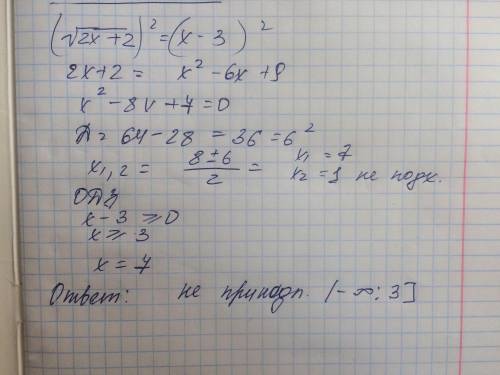 (√2x+2)² = (x-3)²
2x+2 = x²-6x+9
x²-8x+7=0
Д= 64-28 = 36 = 6²
x₁,₂ = 8±6/2 = x₁ = 7
x₂ = 1 не подх.
ОДЗ
x-3 ≥ 0
x ≥ 3
x = 7
Ответ: не принадл. (-∞; 3]